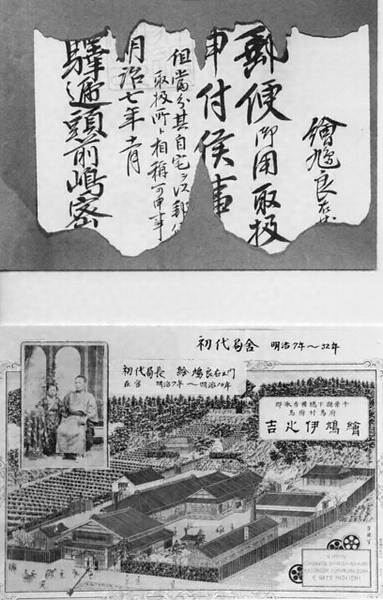 繪鳩良右
郵便御用取扱
申付候事
但當分其自宅ヲ以郵便
取扱所ト相稱可申事
明治七年十二月
驛逓頭前嶋密
初代局舎 明治7年~32年
初代局長 繪鳩良右エ門
在官 明治7年~明治10年
千葉縣下總國香取郡
府馬村府馬
繪鳩伊之吉